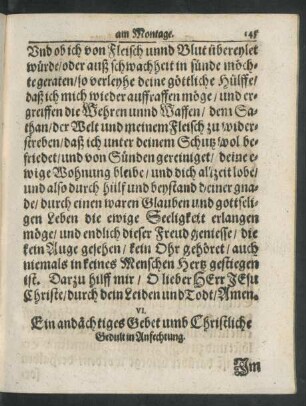 am Montage. 145
Vnd ob ich von Fleisch vnnd Blut übereylet
würde/oder auß schwachheit in sünde möch-
te geraten/so verleyhe deine göttliche Hülffe/
daß ich mich wieder auffraffen möge/ und er-
greiffen die Wehren unnd Waffen/ dem Sa-
than/der Welt und meinem Fleisch zu wider-
streben/daß ich unter deinem Schutz wol be-
friedet/und von Sünden gereiniget/ deine e-
wige Wohnung bleibe/ und dich alzeit lobe/
und also durch hülf und beystand deiner gna-
de/ durch einen waren Glauben und gottseli-
gen Leben die ewige Seeligkeit erlangen
möge/ und endlich dieser Freud geniesse/ die
kein Auge gesehen/ kein Ohr gehöret/ auch
niemals in keines Menschen Hertz gestiegen
ist. Darzu hilff mir/ O lieber HErr JEsu
Christe/durch dein Leiden und Todt/Amen.
VI.
Ein andächtiges Gebet umb Christliche
Gedult in Anfechtung.
Im